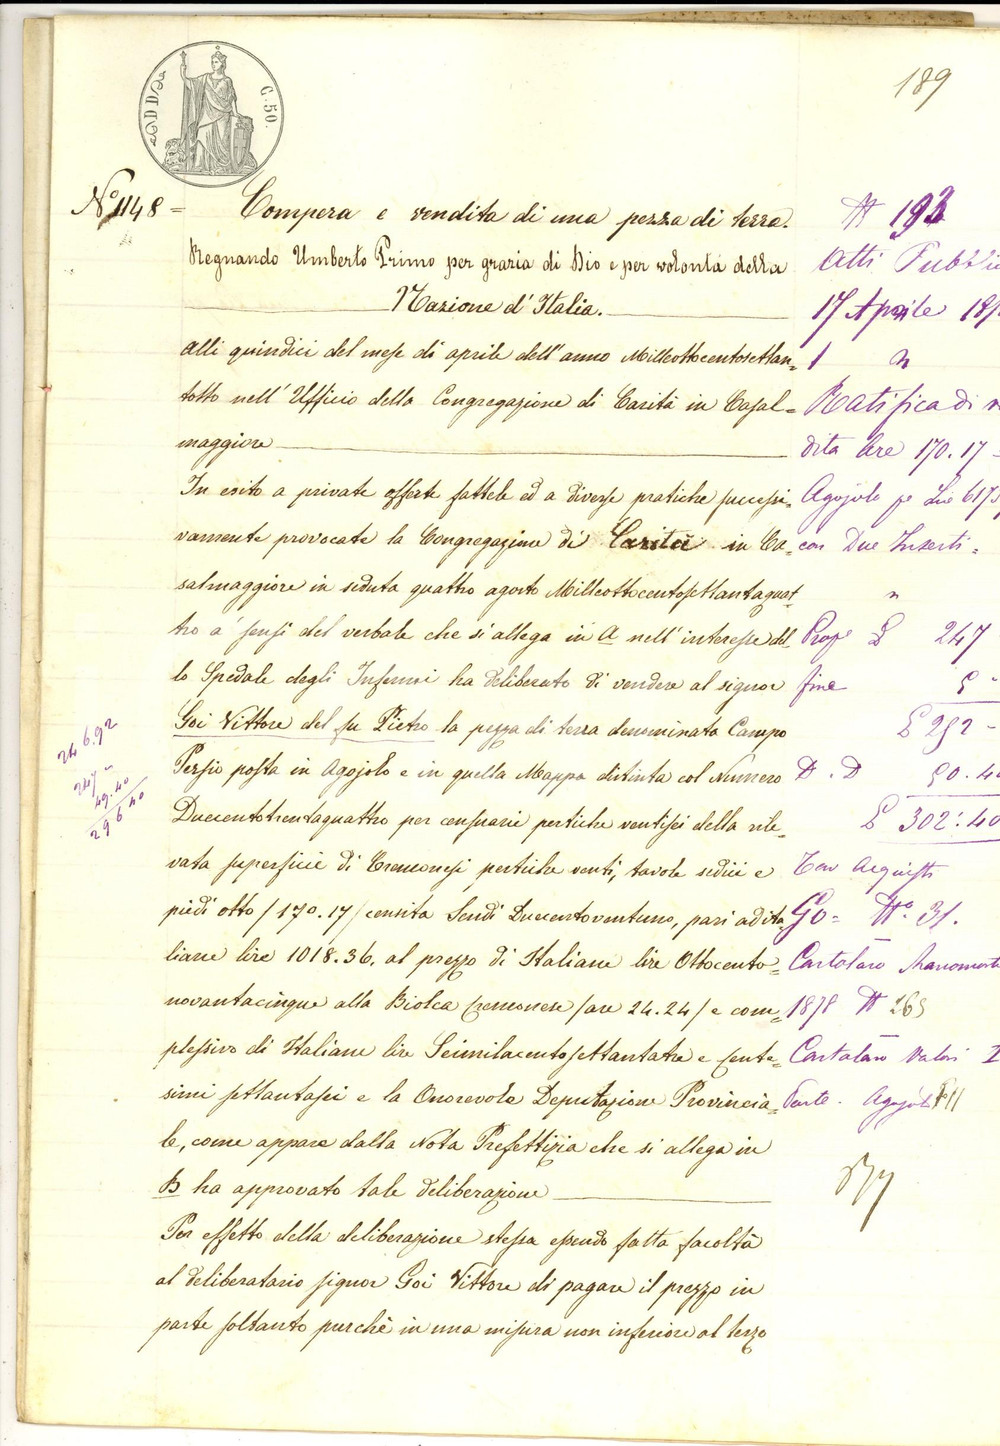 189
C. 50.
N.° 1148 = Compera e vendita di una pezza di terra.
Regnando Umberto Primo per grazia di Dio e per volontà della
Nazione d'Italia.
Alli quindici del mese di aprile dell'anno Milleottocentosettan=
totto nell'Ufficio della Congregazione di Carità in Casal=
maggiore
In esito a private offerte fattele ed a diverse pratiche successi=
vamente provocate la Congregazione di Carità in Ca=
salmaggiore in seduta quattro agosto Milleottocentosettantaquat=
tro a' sensi del verbale che si allega in A nell'interesse del=
lo Spedale degli Infermi ha deliberato di vendere al signor
Goi Vittore del fu Pietro la pezza di terra denominata Campo
Persio posta in Agojolo e in quella Mappa distinta col Numero
Duecentotrentaquattro per censuarie pertiche ventisei della rile=
vata superficie di Cremonesi pertiche venti, tavole sedici e
piedi otto /170.17/ censita Scudi Duecentoventuno, pari ad ita=
liane lire 1018.36. al prezzo di Italiane lire Ottocento=
novantacinque alla Biolca Cremonese /are 24.24/ e com=
plessivo di Italiane lire Seimilacentosettantatre e cente=
simi settantasei e la Onorevole Deputazione Provincia=
le, come appare dalla Nota Prefettizia che si allega in
B ha approvato tale deliberazione
Per effetto della deliberazione stessa essendo fatta facoltà
al deliberatario signor Goi Vittore di pagare il prezzo in
parte soltanto purchè in una misura non inferiore al terzo
N 193
Atti Pubbli
17 Aprile 187
1
Ratifica di
dita Are 170.17
Agojolo per Lire 6173
con Due Inserti =
Prop.e £ 247
fine 5
£ 252 -
D. D 50.40
£ 302:40
Tav Acquisti
Go = N.° 31.
Cartolaro Manomorte
1878 N 265
Cartolaro Valori
Parte. Agojolo
246.92
247
49.40
296 40